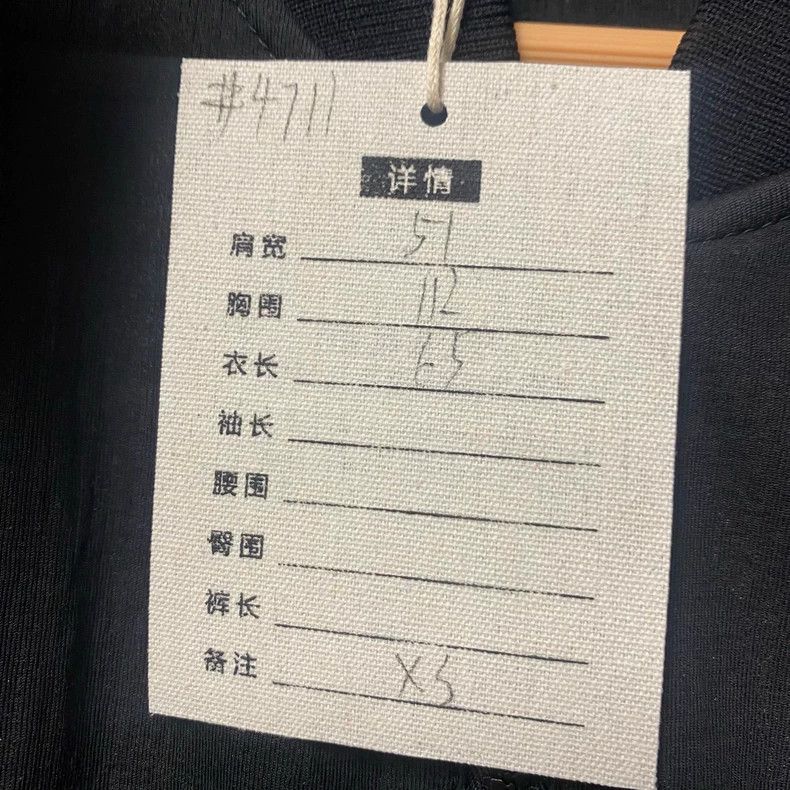 #4711
详情
肩宽 51
胸围 112
衣长 65
袖长
腰围
臀围
裤长
备注 XS